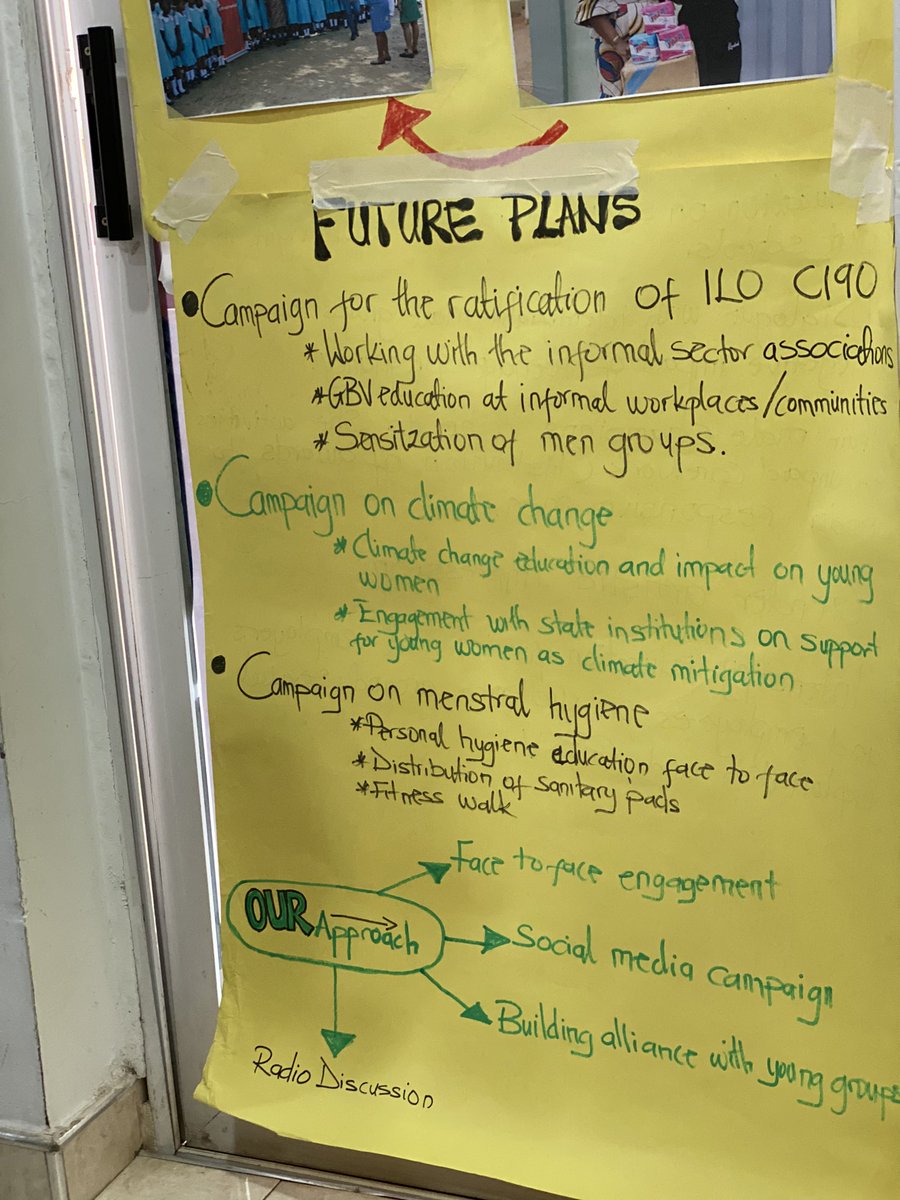 FUTURE PLANS
• Campaign for the ratification of ILO C190
* Working with the informal sector associations
* GBV education at informal workplaces/communities
* Sensitzation of men groups.
• Campaign on climate change
* Climate change education and impact on young
women
* Engagement with state institutions on support
for young women as climate mitigation
• Campaign on menstral hygiene
* Personal hygiene education face to face
* Distribution of sanitary pads
* Fitness walk
OUR Approach
Face to face engagement
Social media campaign
Building alliance with young groups
Radio Discussion